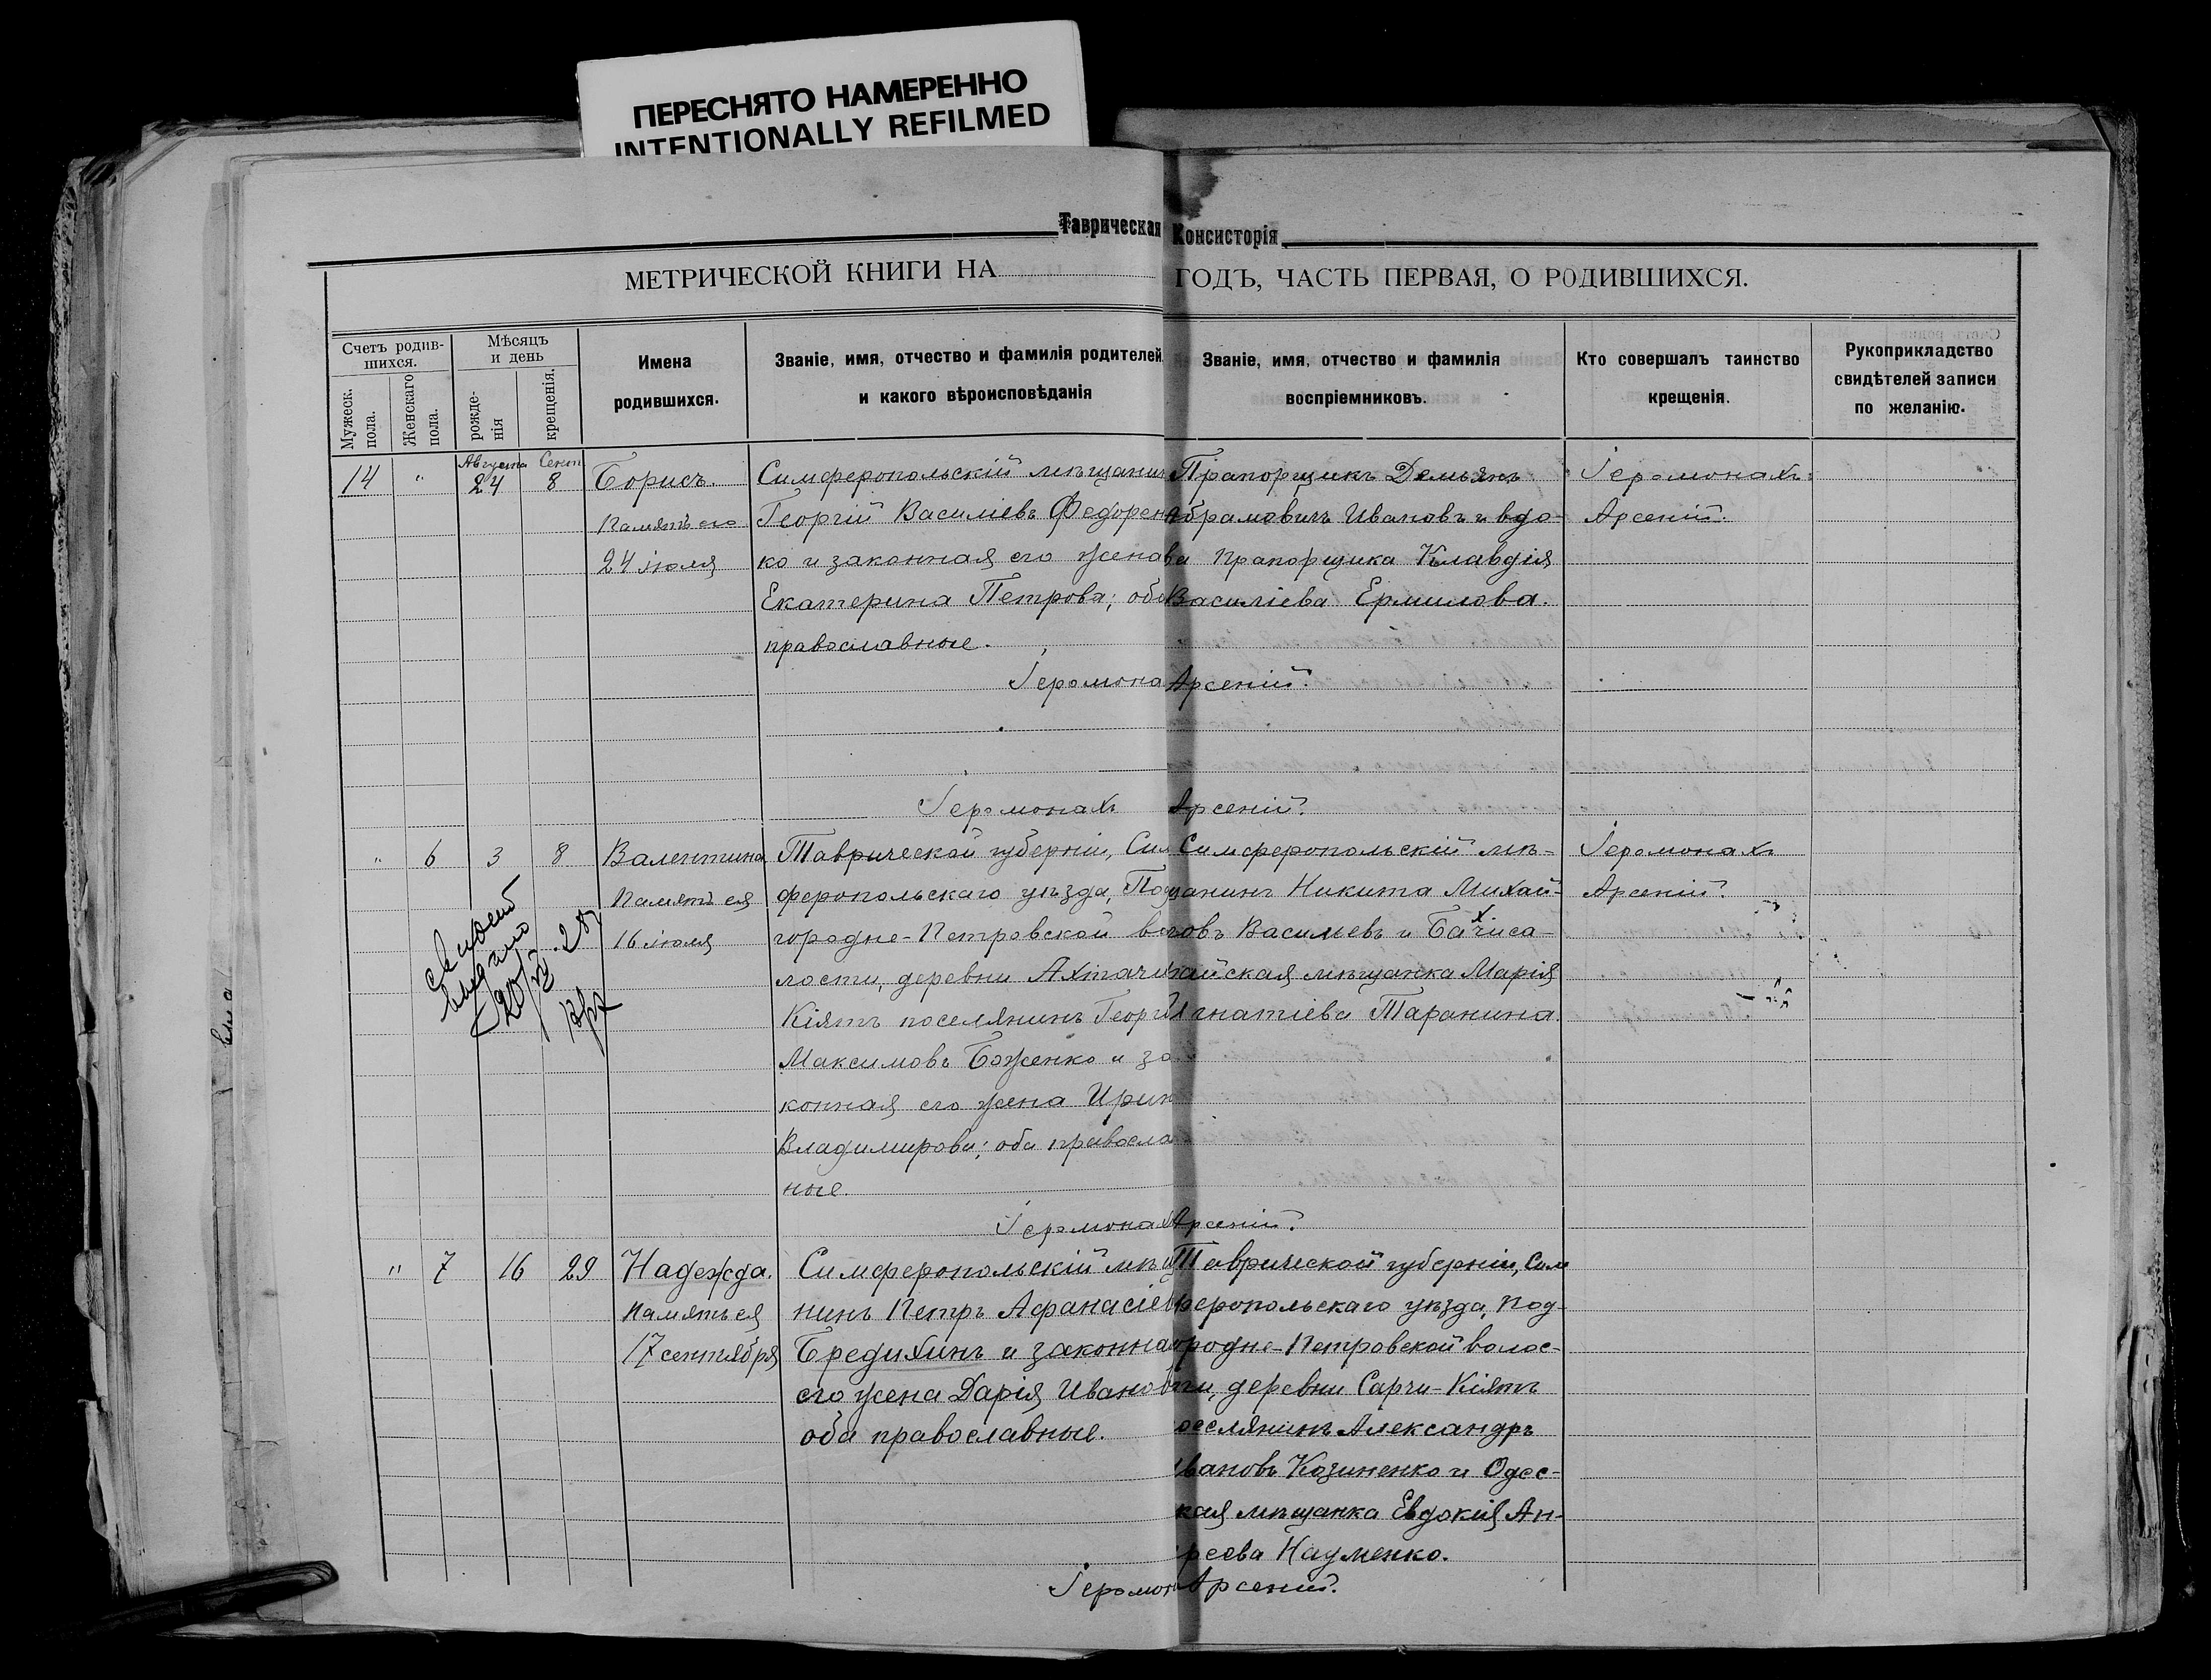 ПЕРЕСНЯТО НАМЕРЕННО
INTENTIONALLY REFILMED
Таврическая Консисторія
МЕТРИЧЕСКОЙ КНИГИ НА ГОДЪ, ЧАСТЬ ПЕРВАЯ, О РОДИВШИХСЯ.
Счетъ родив-
шихся.
Мужеск.
пола.
Женскаго
пола.
Мѣсяцъ
и день
рожде-
нія
крещенія.
Имена
родившихся.
Званіе, имя, отчество и фамилія родителей
и какого вѣроисповѣданія
Званіе, имя, отчество и фамилія
воспріемниковъ.
Кто совершалъ таинство
крещенія.
Рукоприкладство
свидѣтелей записи
по желанію.
Августа Сент.
14 " 24 8
Борисъ.
Память его
24 іюля
Симферопольскій мѣщанин
Георгій Василіевъ Федорен
ко и законная его жена
Екатерина Петрова; оба
православные.
Прапорщикъ Демьянъ
Абрамовичъ Ивановъ и вдо-
ва прапорщика Клавдія
Василіева Ермилова.
Іеромонахъ
Арсеній.
Іеромона Арсеній.
Іеромонахъ Арсеній.
" 6 3 8
Валентина
Память ея
16 іюля
Таврической губерніи, Сим
феропольскаго уѣзда, Под
городне-Петровской во
лости, деревни Ахтачи
Кіятъ поселянинъ Георгі
Максимовъ Боженко и за
конная его жена Ирин
Владимирова; оба правосла
ные.
Симферопольскій мѣ-
щанинъ Никита Михай-
ловъ Василіевъ и Бахчиса-
райская мѣщанка Марія
Игнатіева Таранина.
Іеромонахъ
Арсеній.
20/
28
Іеромонахъ Арсеній.
" 7 16 29
Надежда.
Память ея
17 сентября
Симферопольскій мѣщ
нинъ Петръ Афанасіев
Бредихинъ и законна
его жена Дарія Иванов
оба православные.
Таврической губерніи, Сим
феропольскаго уѣзда, Под-
городне-Петровской волос-
ти, деревни Сарчи-Кіятъ
оселянинъ Александръ
Ивановъ Козиненко и Одес-
кая мѣщанка Евдокія Ан-
реева Надменко.
Іеромона Арсеній.